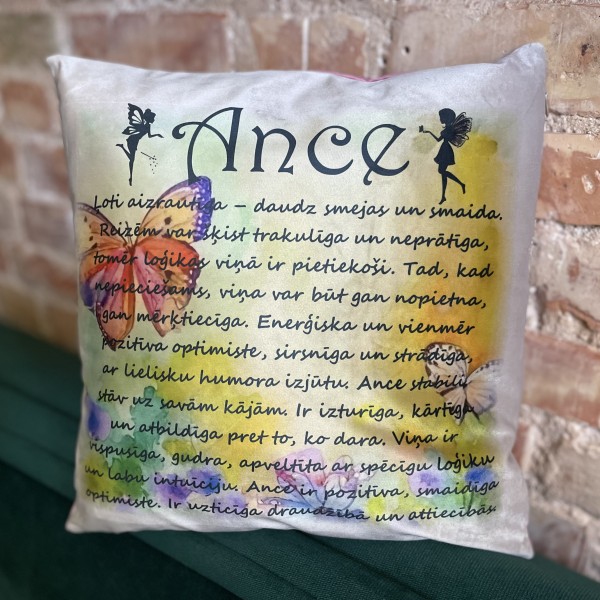 Ance
Ļoti aizrautīga – daudz smejas un smaida.
Reizēm var šķist trakulīga un neprātīga,
tomēr loģikas viņā ir pietiekoši. Tad, kad
nepieciešams, viņa var būt gan nopietna,
gan mērķtiecīga. Enerģiska un vienmēr
pozitīva optimiste, sirsnīga un strādīga,
ar lielisku humora izjūtu. Ance stabili
stāv uz savām kājām. Ir izturīga, kārtīga
un atbildīga pret to, ko dara. Viņa ir
vispusīga, gudra, apveltīta ar spēcīgu loģiku
un labu intuīciju. Ance ir pozitīva, smaidīga
optimiste. Ir uzticīga draudzībā un attiecībās.